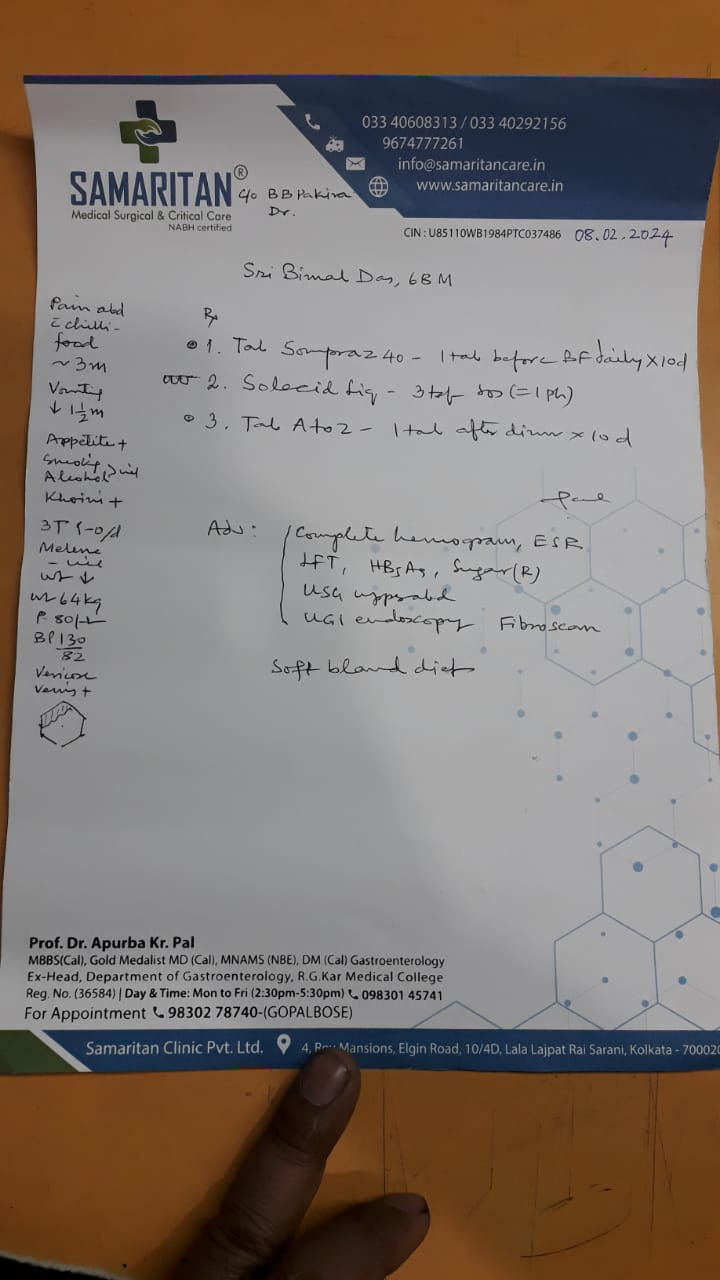 SAMARITAN®
Medical Surgical & Critical Care
NABH certified
033 40608313 / 033 40292156
9674777261
info@samaritancare.in
www.samaritancare.in
CIN : U85110WB1984PTC037486 08.02.2024
C/o BB Pakira
Dr.
Sri Bimal Das, 68 M
Pain abd
c̄ chilli-
food
~ 3m
↓ 1½m
Appetite +
Smoking
Alcohol
Khoini +
Melena
wt ↓
wt 64kg
P 80/
BP 130
82
Varicose
Veins +
Rx
1. Tab Sompraz 40 - 1 tab before BF daily x 10d
2. Solecid Liq - 3 tsf sos (= 1 ph)
3. Tab A to Z - 1 tab after dinner x 10d
Adv : Complete hemogram, ESR
LFT, HBsAg, Sugar (R)
USG upper abd
UGI endoscopy Fibroscan
Soft bland diet
Prof. Dr. Apurba Kr. Pal
MBBS(Cal), Gold Medalist MD (Cal), MNAMS (NBE), DM (Cal) Gastroenterology
Ex-Head, Department of Gastroenterology, R.G.Kar Medical College
Reg. No. (36584) | Day & Time: Mon to Fri (2:30pm-5:30pm) 098301 45741
For Appointment 98302 78740-(GOPALBOSE)
Samaritan Clinic Pvt. Ltd. 4, Roy Mansions, Elgin Road, 10/4D, Lala Lajpat Rai Sarani, Kolkata - 70002